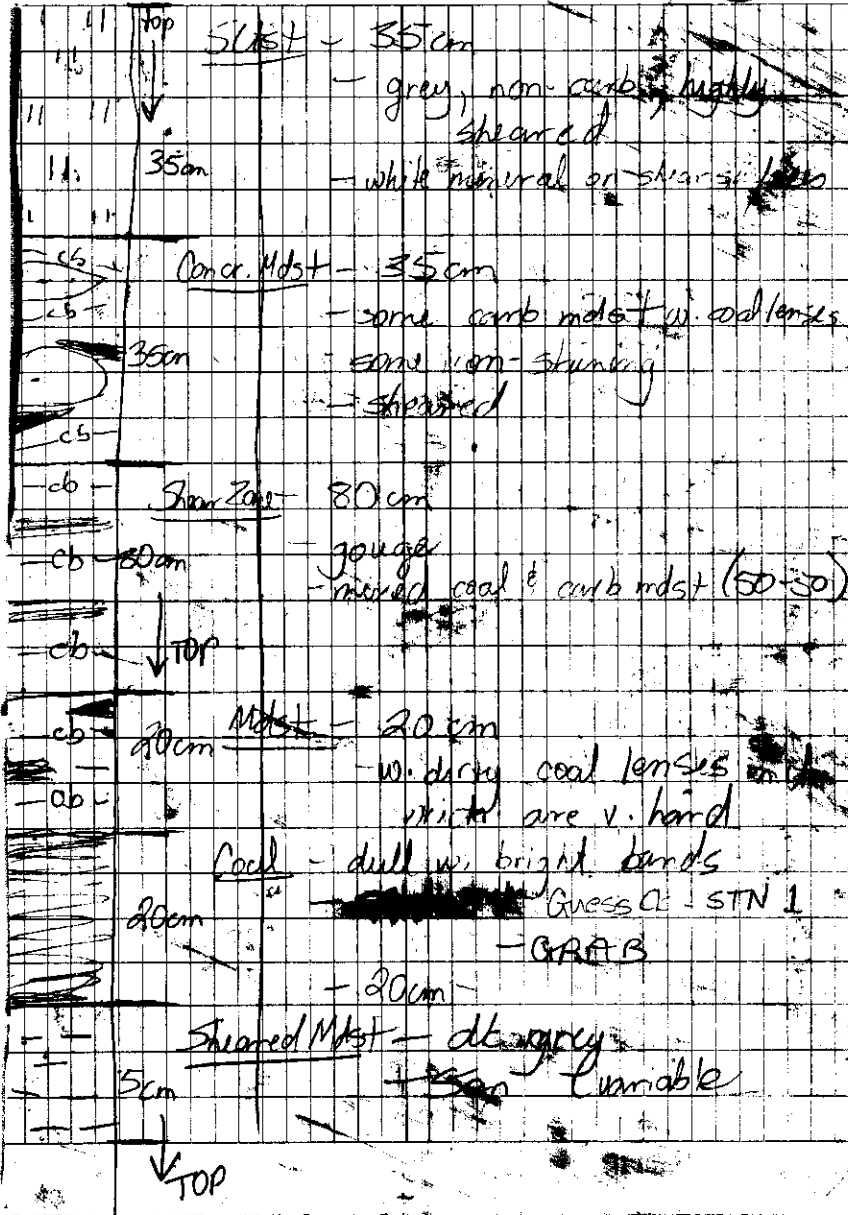 Top
Sltst - 35cm
- grey, non-carb, highly
sheared
35cm
- white mineral on shear
cb
Concr. Mdst - 35cm
cb
- some carb mdst w. coal lenses
35cm
- some iron-staining
- sheared
cb
cb
Shear Zone - 80cm
- gouge
cb
80cm
- mixed coal & carb mdst (50-50)
cb
TOP
Mdst - 20cm
cb
20cm
- w. dirty coal lenses
cb
are v. hard
Coal - dull w. bright bands
20cm
- STN 1
- GRAB
- 20cm
Sheared Mdst - dk grey
5cm
- 5cm (variable
TOP